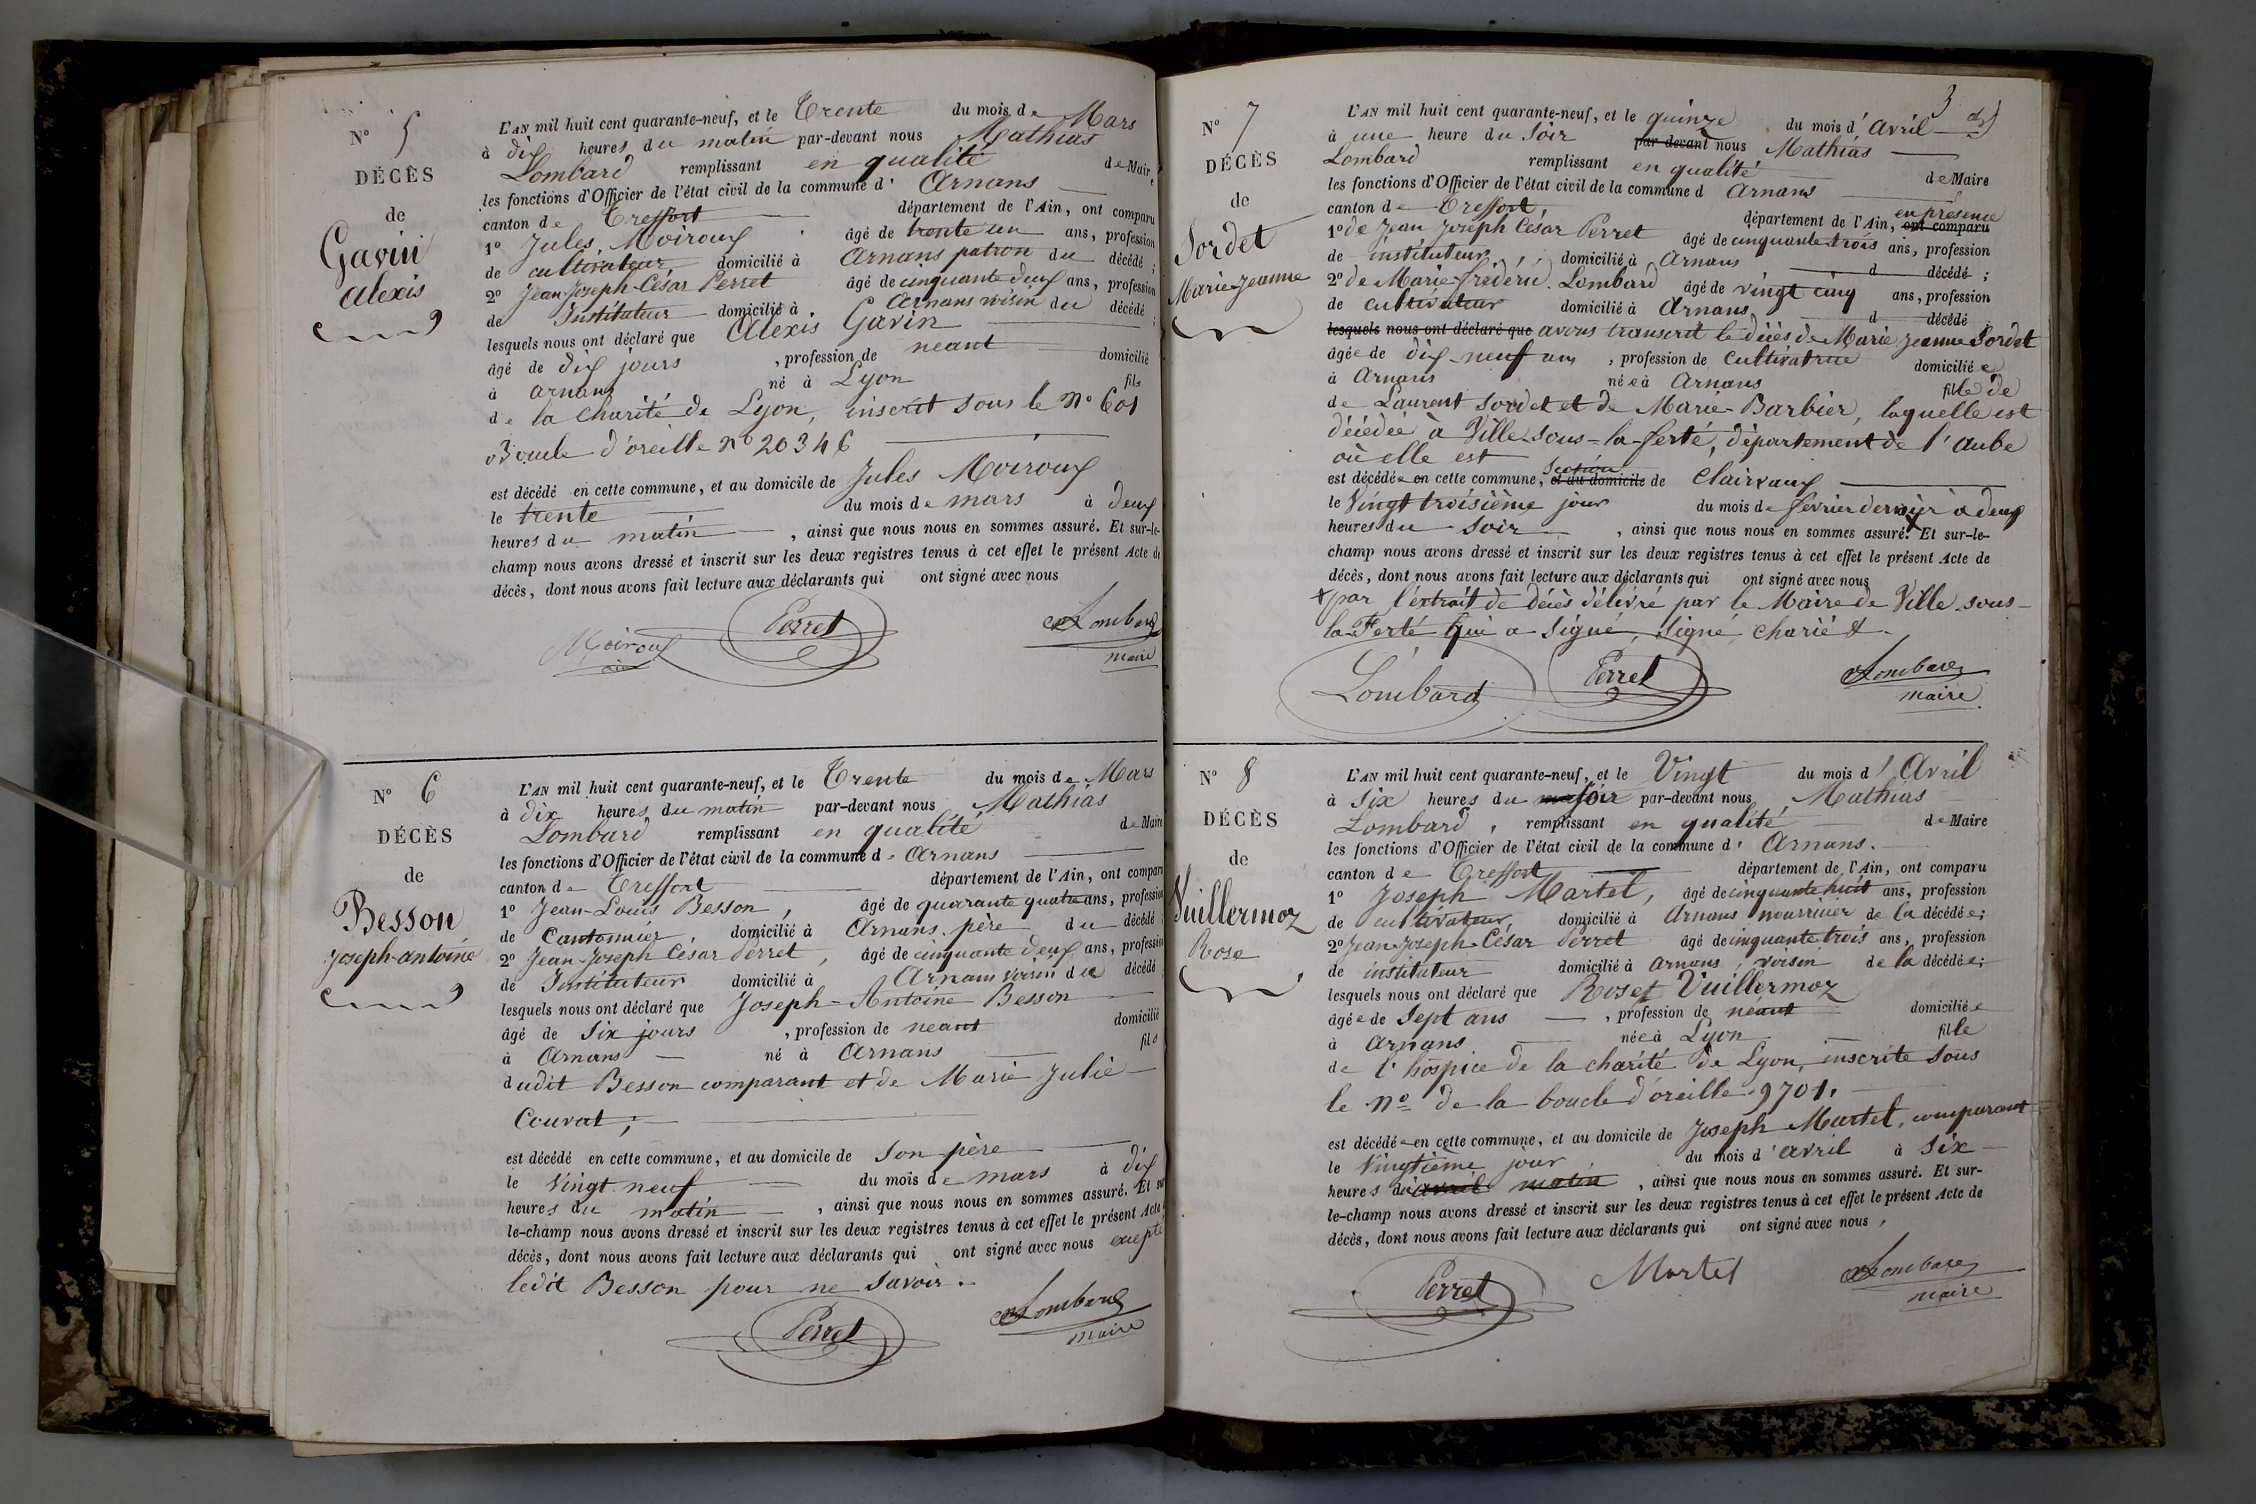 N° 5
DÉCÈS
de
Gavin
alexis
L'AN mil huit cent quarante-neuf, et le Trente du mois de Mars
à dix heures du matin par-devant nous Mathias
Lombard remplissant en qualité de Maire
les fonctions d'Officier de l'état civil de la commune d' Arnans
canton de Treffort département de l'Ain, ont comparu
1° Jules Moiroux âgé de trente un ans, profession
de cultivateur, domicilié à Arnans patron du décédé ;
2° Jean-Joseph-César Perret âgé de cinquante deux ans, profession
de Instituteur domicilié à Arnans voisin du décédé ;
lesquels nous ont déclaré que Alexis Gavin
âgé de dix jours , profession de neant domicilié
à arnans né à Lyon fils
de la charité de Lyon, inscrit sous le N° 601
Boucle d'oreille n° 20346
est décédé en cette commune, et au domicile de Jules Moiroux
le trente du mois de mars à deux
heures du matin , ainsi que nous nous en sommes assuré. Et sur-le-
champ nous avons dressé et inscrit sur les deux registres tenus à cet effet le présent Acte de
décès, dont nous avons fait lecture aux déclarants qui ont signé avec nous
Moiroux Perret Lombard
maire
N° 6
DÉCÈS
de
Besson
Joseph-antoine
L'AN mil huit cent quarante-neuf, et le Trente du mois de Mars
à dix heures du matin par-devant nous Mathias
Lombard remplissant en qualité de Maire
les fonctions d'Officier de l'état civil de la commune d' Arnans
canton de Treffort département de l'Ain, ont comparu
1° Jean-Louis Besson, âgé de quarante quatre ans, profession
de Cantonnier, domicilié à Arnans, père du décédé
2° Jean-Joseph César Perret, âgé de cinquante deux ans, profession
de Instituteur domicilié à Arnans voisin du décédé
lesquels nous ont déclaré que Joseph-Antoine Besson
âgé de six jours , profession de neant domicilié
à Arnans né à Arnans fils
dudit Besson comparant et de Marie Julie
Couvat ;
est décédé en cette commune, et au domicile de Son père
le Vingt neuf du mois de mars à dix
heures du matin , ainsi que nous nous en sommes assuré. Et sur
le-champ nous avons dressé et inscrit sur les deux registres tenus à cet effet le présent Acte
décès, dont nous avons fait lecture aux déclarants qui ont signé avec nous excepté
ledit Besson pour ne savoir.
Perret Lombard
maire
3
N° 7
DÉCÈS
de
Sordet
Marie-Jeanne
L'AN mil huit cent quarante-neuf, et le quinze du mois d' Avril
à une heure du Soir par-devant nous Mathias
Lombard remplissant en qualité de Maire
les fonctions d'Officier de l'état civil de la commune d Arnans
canton de Treffort, département de l'Ain, ont comparu en présence
1° de Jean Joseph César Perret âgé de cinquante trois ans, profession
de instituteur domicilié à Arnans d décédé ;
2° de Marie-fréderic Lombard âgé de vingt cinq ans, profession
de cultivateur domicilié à Arnans d décédé
lesquels nous ont déclaré que avons transcrit le décès de Marie Jeanne Sordet
âgée de dix-neuf ans , profession de Cultivatrice domiciliée
à Arnans née à Arnans fille de
de Laurent Sordet et de Marie-Barbier, laquelle est
décédée à Ville-sous-la-ferté, département de l'aube
où elle est
est décédée en cette commune, et au domicile Section de Clairvaux
le Vingt troisième jour du mois de fevrier dernier à deux
heures du Soir , ainsi que nous nous en sommes assuré. x Et sur-le-
champ nous avons dressé et inscrit sur les deux registres tenus à cet effet le présent Acte de
décès, dont nous avons fait lecture aux déclarants qui ont signé avec nous
x par l'extrait de décès délivré par le Maire de Ville-sous-
la-Ferté qui a signé, signé
Lombard Perret Lombard
maire
N° 8
DÉCÈS
de
Vuillermoz
Rose
L'AN mil huit cent quarante-neuf, et le Vingt du mois d' Avril
à Six heures du soir par-devant nous Mathias
Lombard, remplissant en qualité de Maire
les fonctions d'Officier de l'état civil de la commune d' Arnans.
canton de Treffort département de l'Ain, ont comparu
1° Joseph Martel, âgé de cinquante huit ans, profession
de cultivateur, domicilié à Arnans nourricier de la décédée;
2° Jean-Joseph-César Perret âgé de cinquante trois ans, profession
de instituteur domicilié à arnans, voisin de la décédée;
lesquels nous ont déclaré que Vuillermoz
âgée de Sept ans , profession de néant domiciliée
à Arnans née à Lyon fille
de l'hospice de la charité de Lyon, inscrite sous
le n° de la boucle d'oreille 9701.
est décédée en cette commune, et au domicile de Joseph Martel, comparant
le Vingtième jour du mois d' avril à Six
heures du avril matin , ainsi que nous nous en sommes assuré. Et sur-
le-champ nous avons dressé et inscrit sur les deux registres tenus à cet effet le présent Acte de
décès, dont nous avons fait lecture aux déclarants qui ont signé avec nous,
Perret Martel Lombard
maire